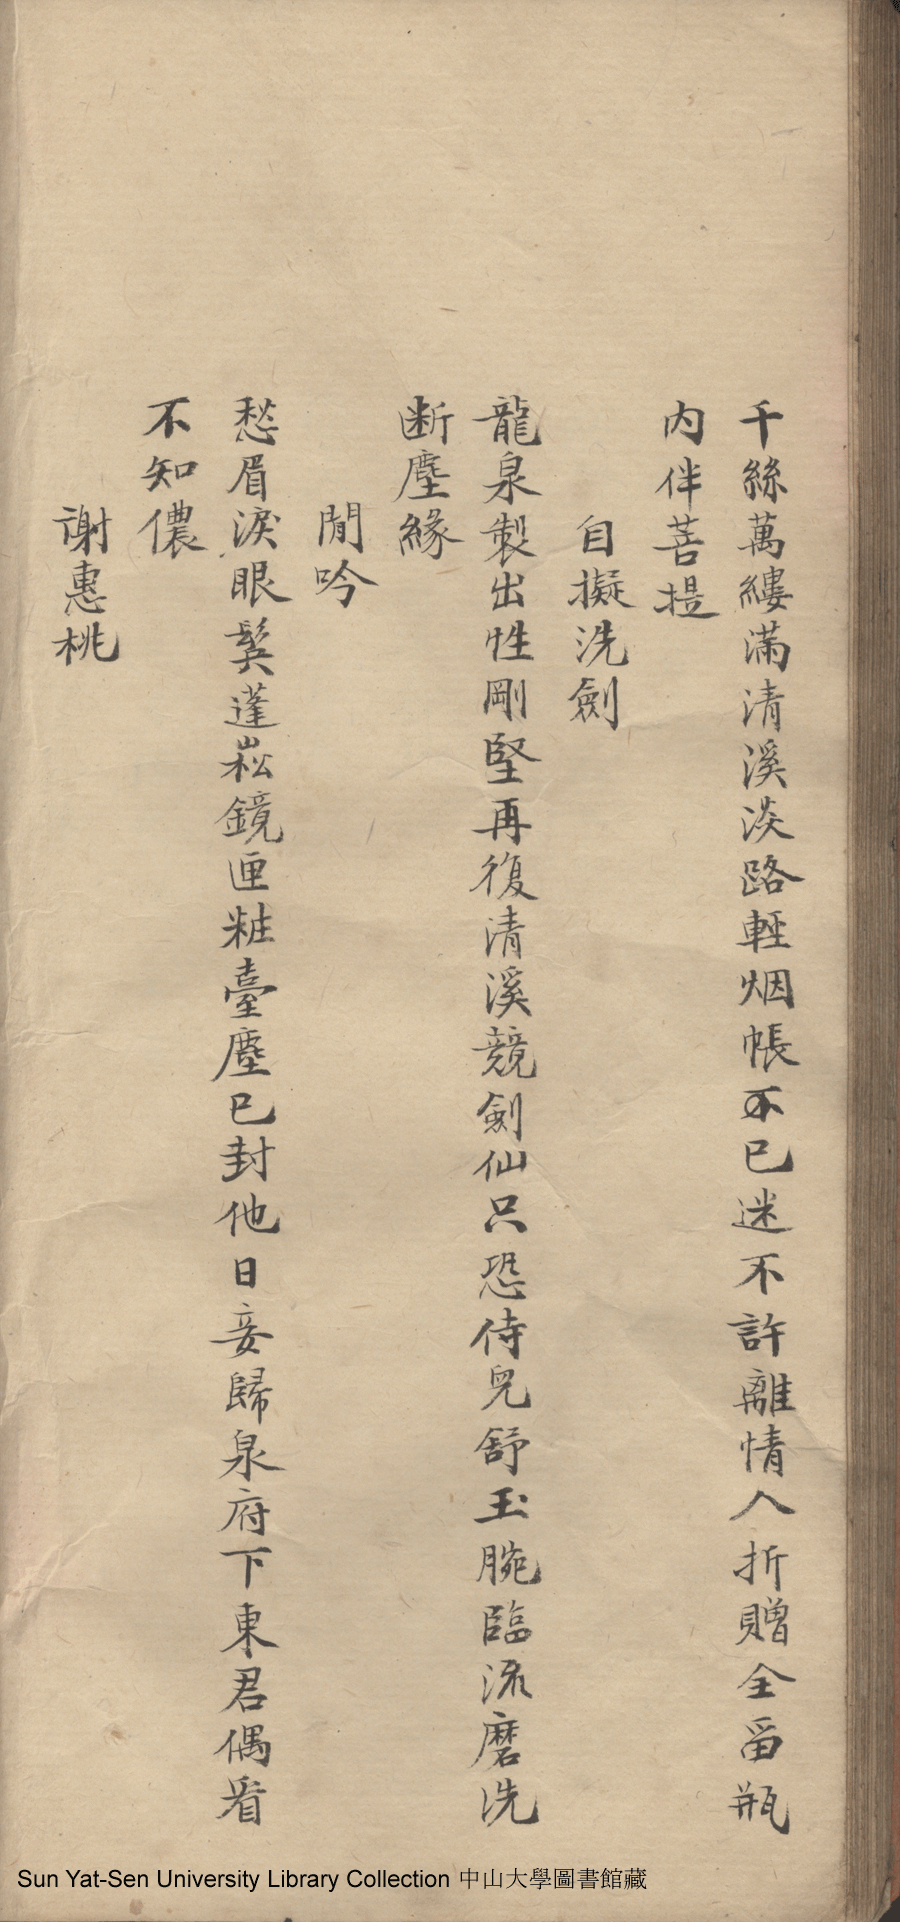 千絲萬縷滿清溪淡路輕烟帳不已迷不許離情人折贈全留瓶
内伴菩提
自擬洗劍
龍泉製出性剛堅再復清溪競劍仙只恐侍兒舒玉腕臨流磨洗
断塵緣
閒吟
愁眉淚眼髩蓬崧鏡匣粧臺塵已封他日妾歸泉府下東君偶看
不知儂
謝惠桃
Sun Yat-Sen University Library Collection 中山大學圖書館藏